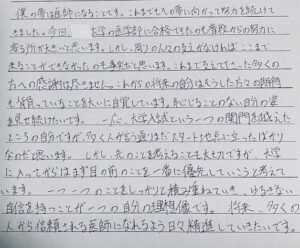 僕の夢は医師になることです。これまでもその夢に向かって努力を続けて
きました。今回 大学の医学部に合格できたのも普段からの努力に
寄る所が大きいと思います。しかし、周りの人々の支えがなければここまで
来ることができなかったのも事実だと思います。これまで支えて下さった多くの
方への感謝は尽きません。これからの将来の自分はそうした方々の期待
も背負っていることを大いに自覚しています。恥じることのない自分の姿
を見せ続けたいです。一応、大学入試という一つの関門を越えた
ところの自分ですが、多くの人が言う通りまだスタート地点に立ったばかり
なのだと思います。しかし、先のことを考えることも大切ですが、大学
に入ってからはまず目の前のことを一番に優先していこうと考えて
います。一つ一つのことをしっかりと積み重ねていき、ゆるぎない
自信を持つことが一つの自分の理想像です。将来、多くの
人から信頼される医師になれるよう日々精進していきたいです。